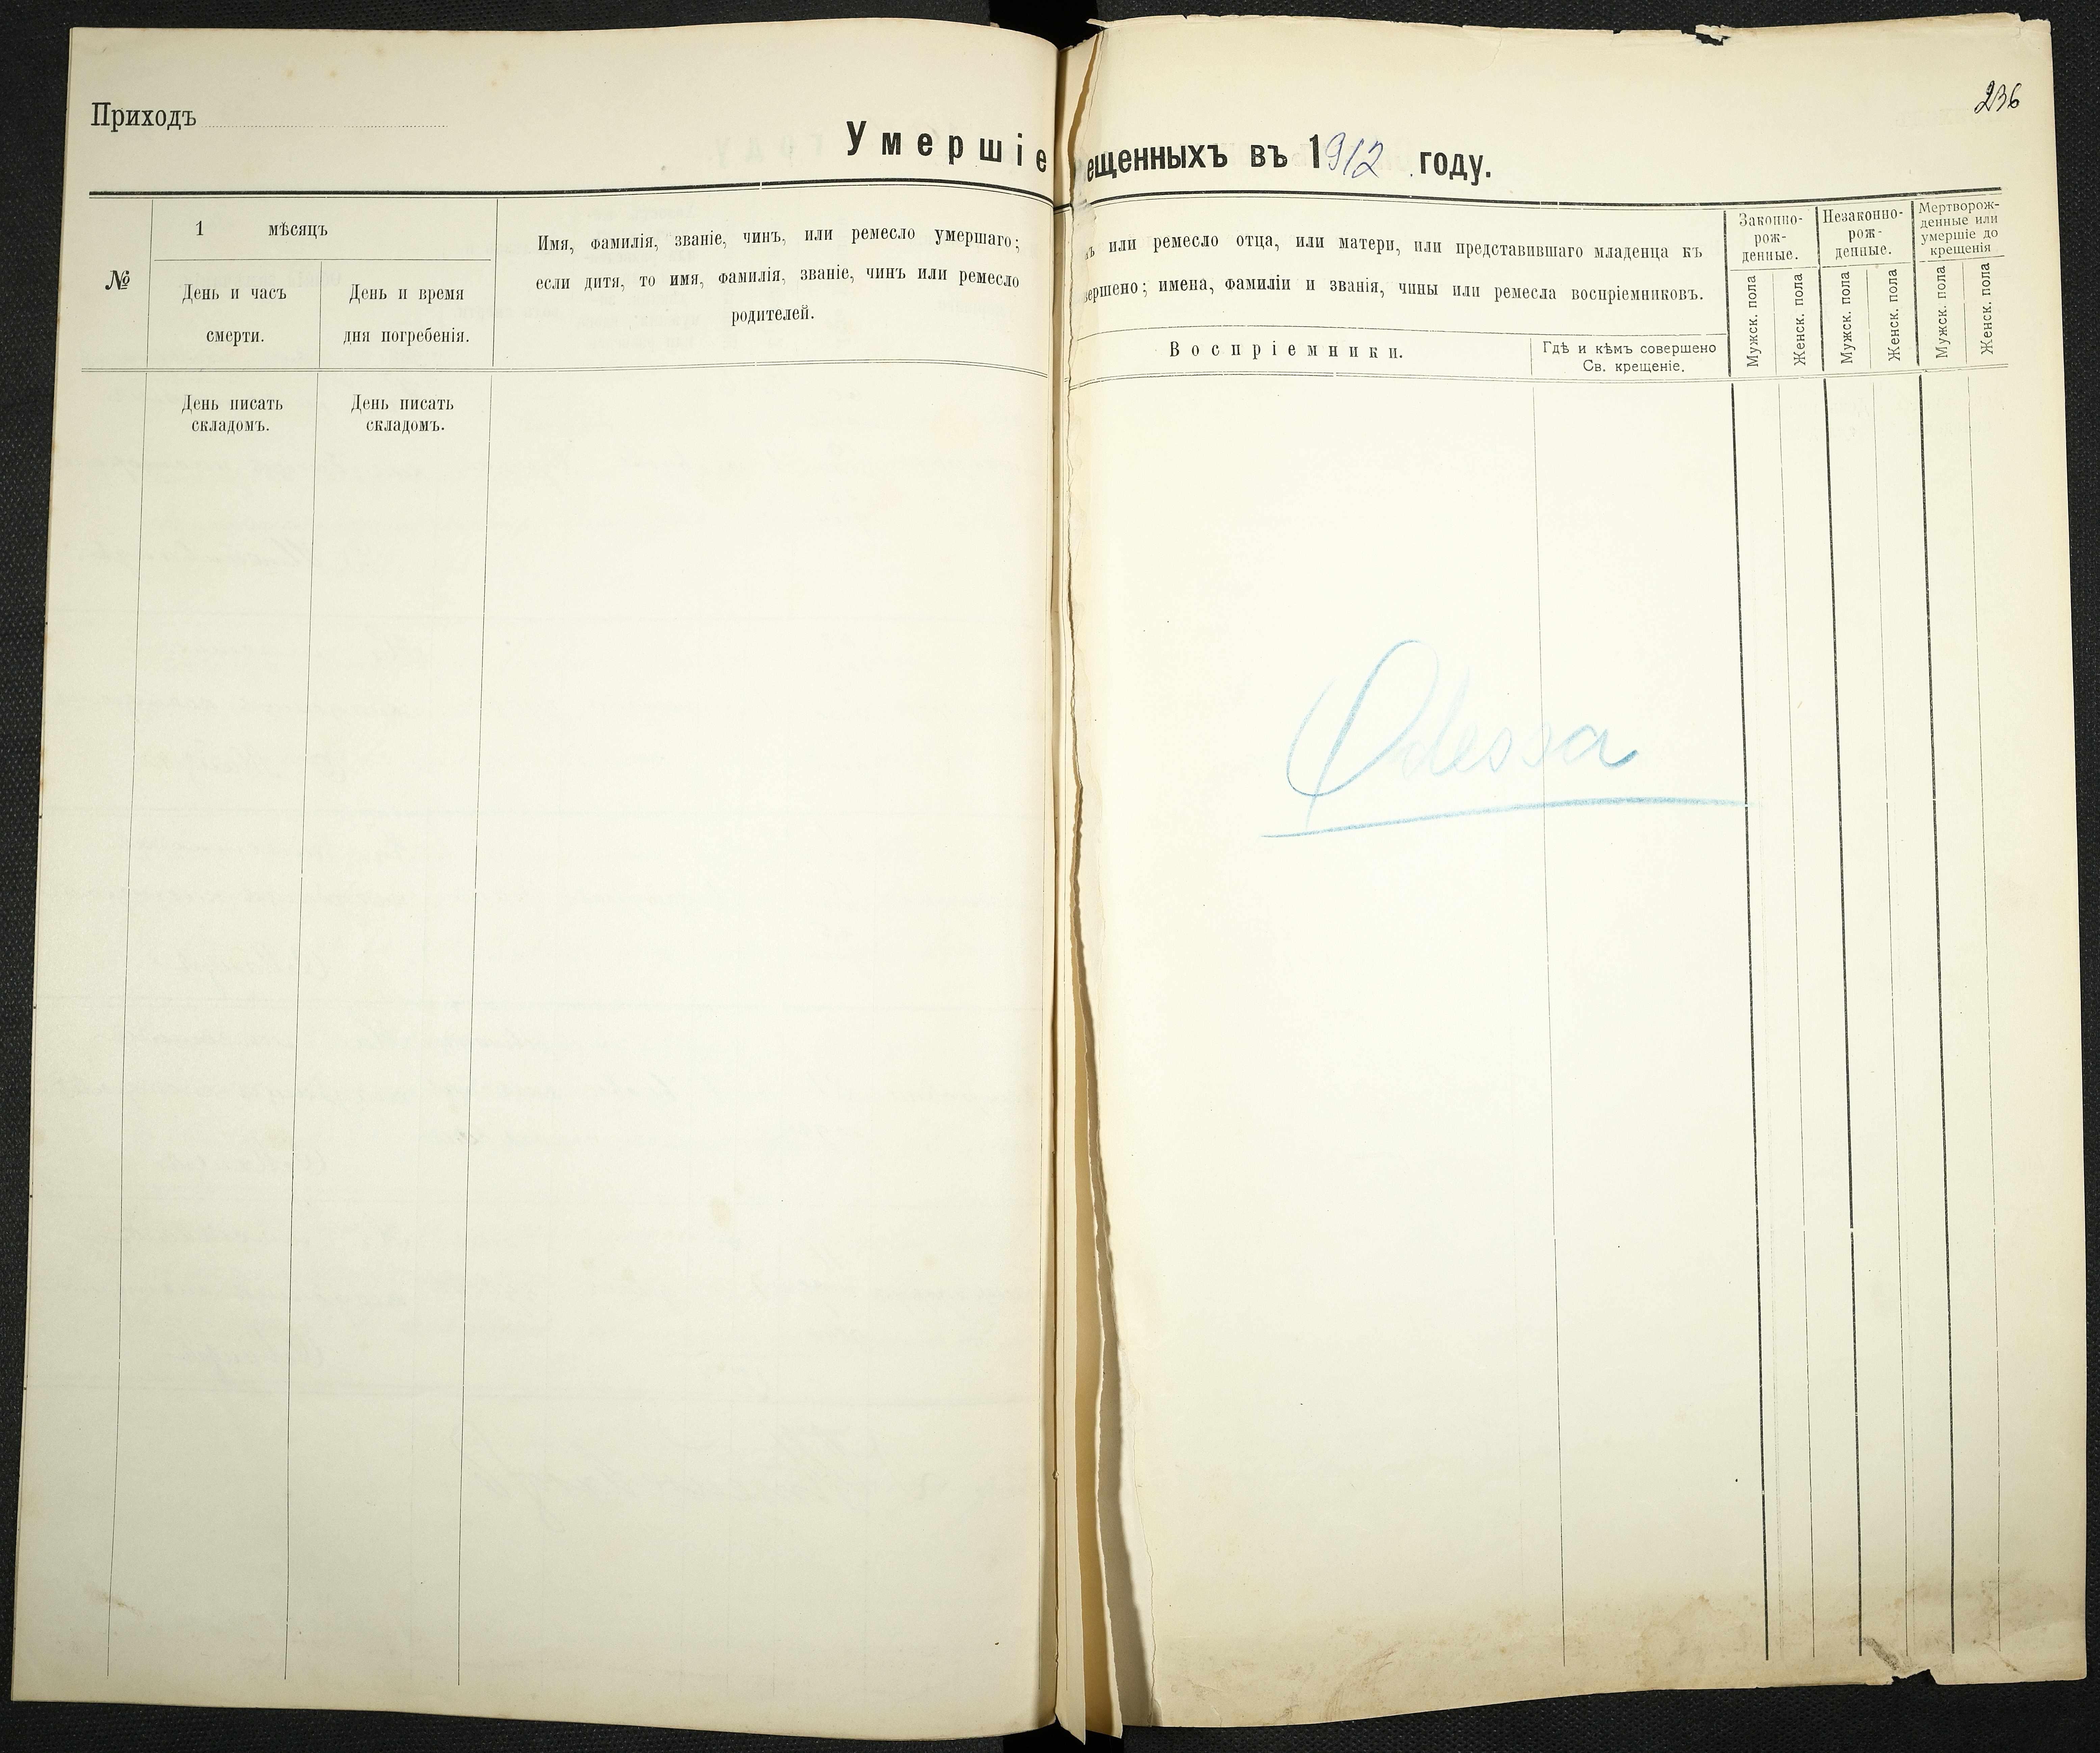 Приходъ
Умершіе
№
1 мѣсяцъ
День и часъ
смерти.
День и время
дня погребенія.
Имя, фамилія, званіе, чинъ, или ремесло умершаго;
если дитя, то имя, фамилія, званіе, чинъ или ремесло
родителей.
День писать
складомъ.
День писать
складомъ.
236
ещенныхъ въ 1912 году.
или ремесло отца, или матери, или представившаго младенца къ
вершено; имена, фамиліи и званія, чины или ремесла воспріемниковъ.
Воспріемники.
Гдѣ и кѣмъ совершено
Св. крещеніе.
Законно-
рож-
денные.
Незаконно-
рож-
денные.
Мертворож-
денные или
умершіе до
крещенія
Мужск. пола
Женск. пола
Мужск. пола
Женск. пола
Мужск. пола
Женск. пола
Odessa